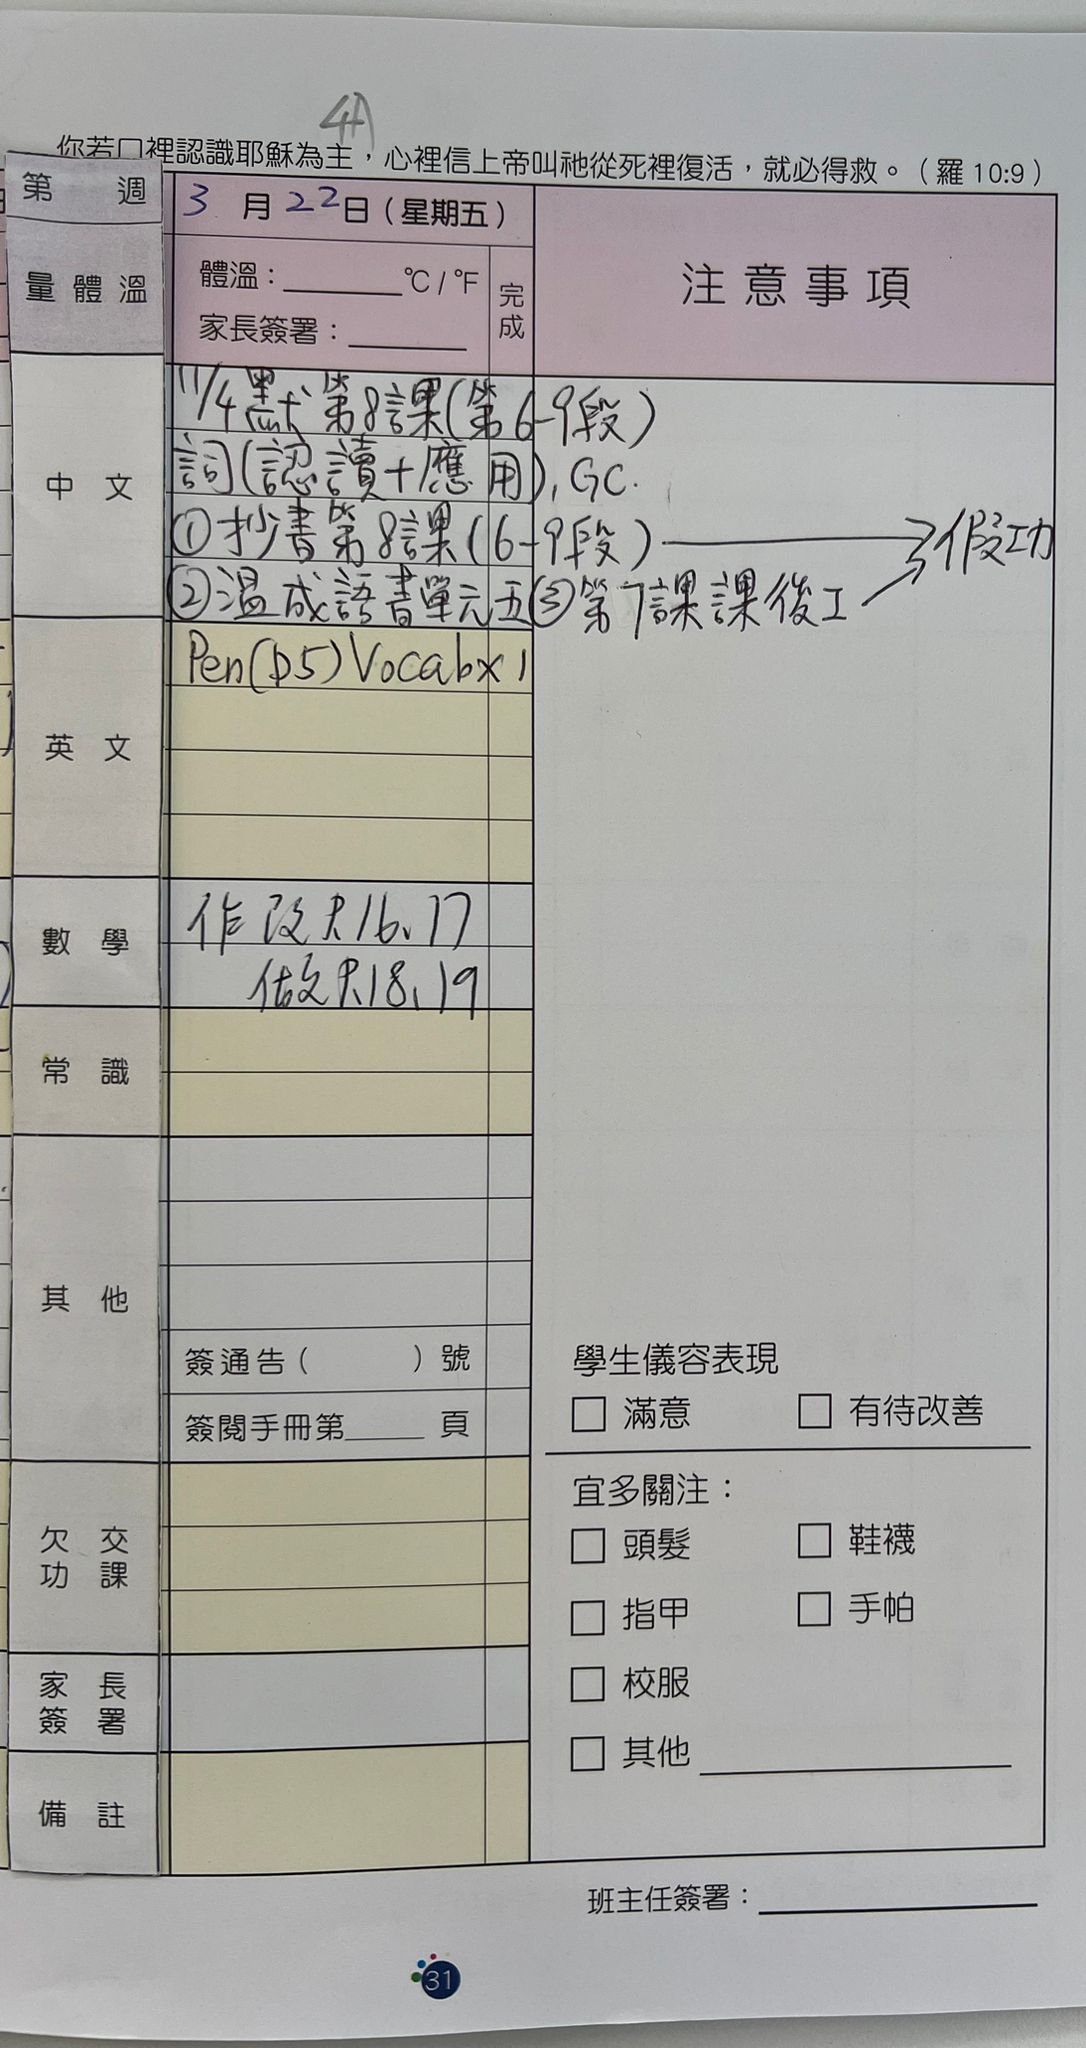 4A
你若口裡認識耶穌為主，心裡信上帝叫祂從死裡復活，就必得救。（羅 10:9）
第 週
3 月 22日（星期五）
注意事項
量體溫
體溫：______ °C / °F
家長簽署：______
完成
中文
11/4默第8課(第6-9段)
詞(認讀+應用), GC.
①抄書第8課(6-9段) → 假功
②溫成語書單元五③第7課課後工
英文
Pen(P5) Vocab x 1
數學
作改P.16、17
做P.18、19
常識
其他
簽通告（ ）號
簽閱手冊第____頁
學生儀容表現
□ 滿意 □ 有待改善
宜多關注：
□ 頭髮 □ 鞋襪
□ 指甲 □ 手帕
□ 校服
□ 其他____________
欠交
功課
家長
簽署
備註
班主任簽署：____________
31